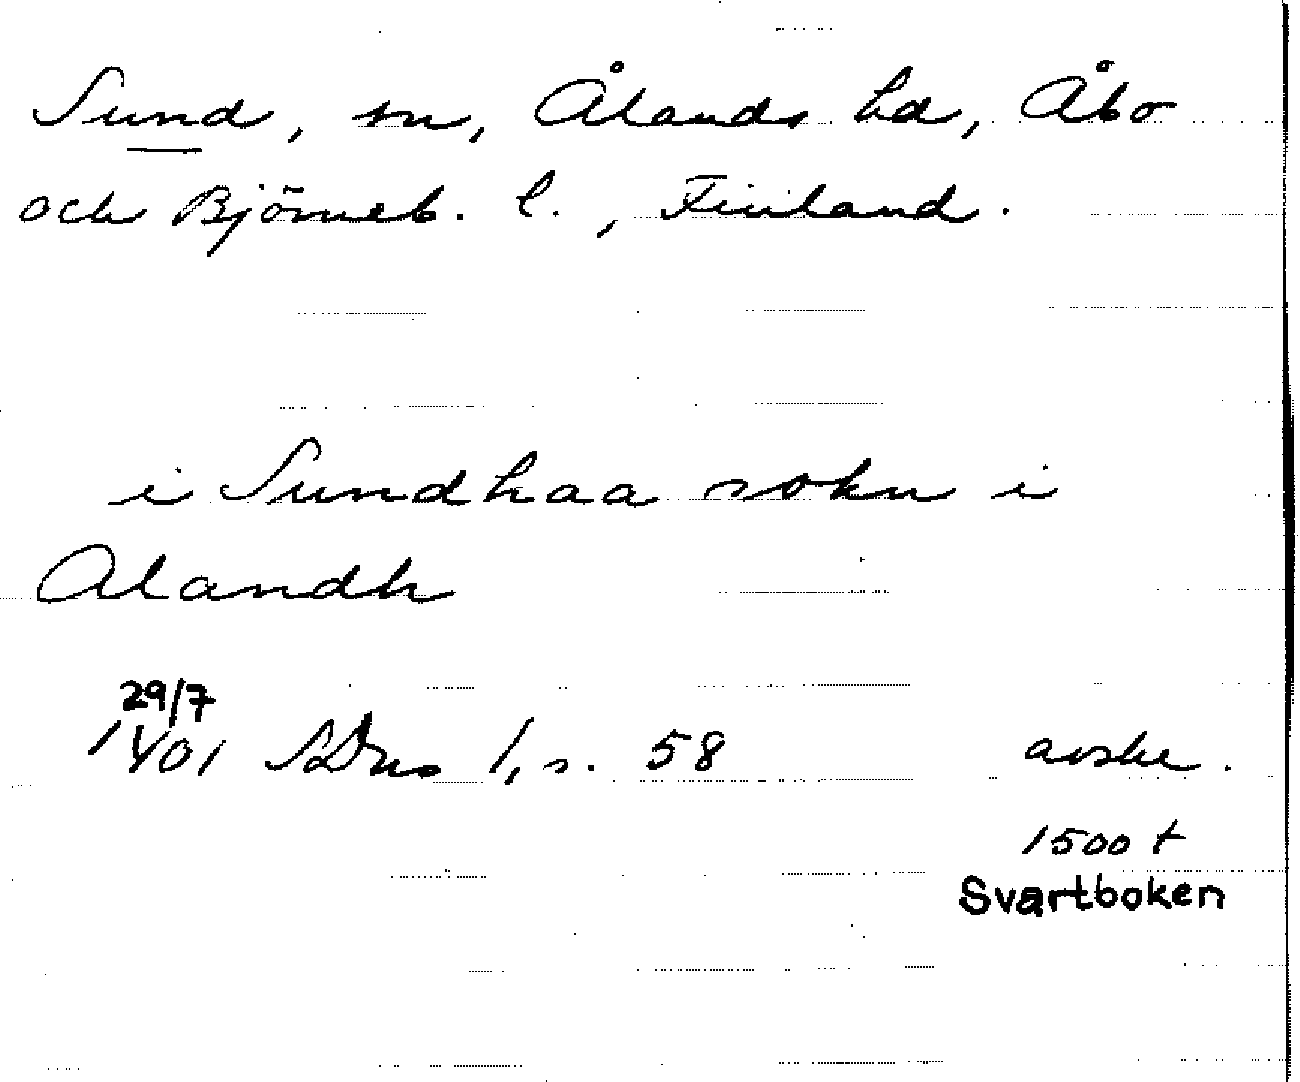 Sund, sn, Ålands hd, Åbo
och Björneb. l., Finland.
i Sundhaa sokn i
Alandh
29/7
1401 SDns 1, s. 58 avskr.
1500 t
Svartboken